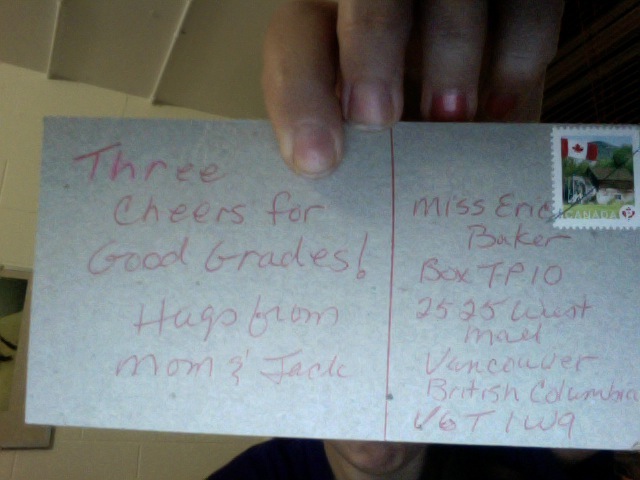 Three
Cheers for
Good Grades!
Hugs from
Mom & Jack
Miss Eric
Baker
Box TP10
2525 West
Mall
Vancouver
British Columbia
V6T 1W9
CANADA
P